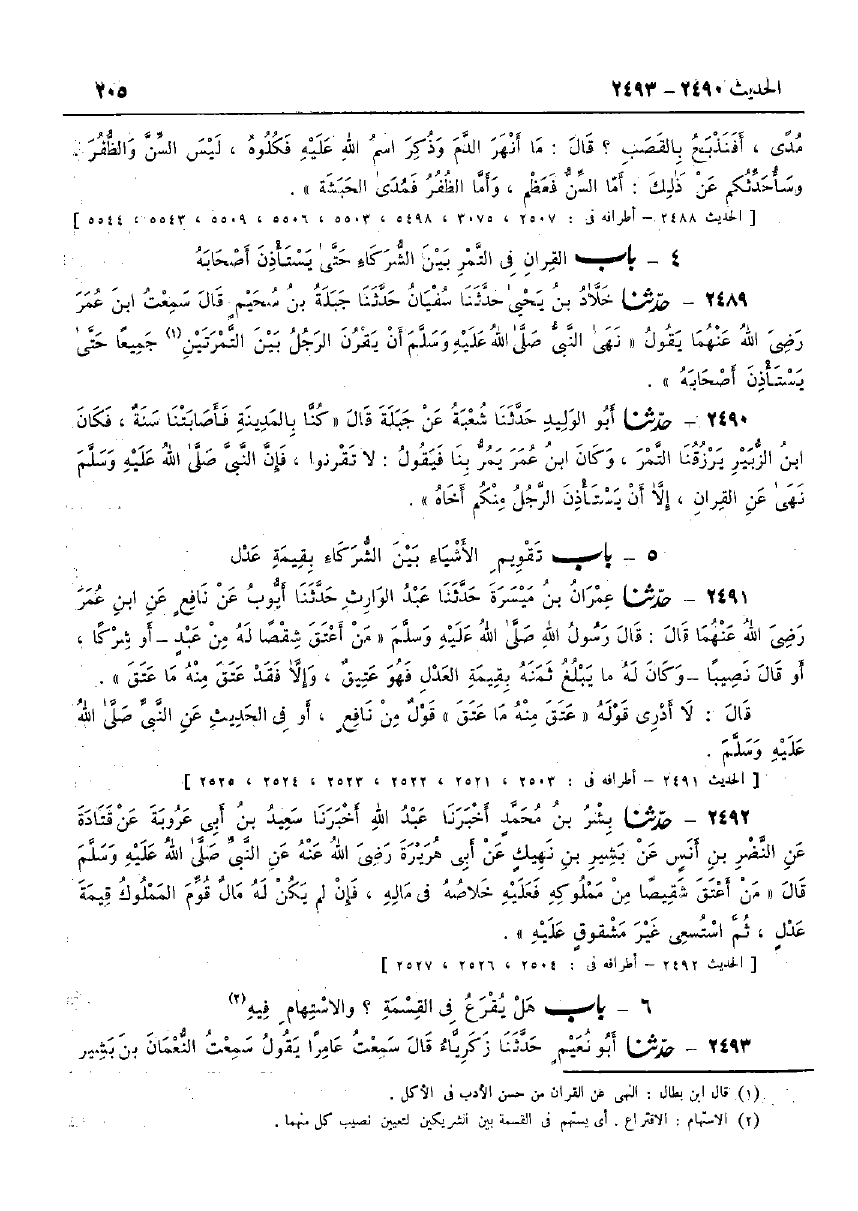 الحديث ٢٤٩٠ - ٢٤٩٣ ٢٠٥
مُدًى ، أَفَنَذْبَحُ بِالقَصَبِ ؟ قَالَ : مَا أَنْهَرَ الدَّمَ وَذُكِرَ اسمُ اللهِ عَلَيْهِ فَكُلُوهُ ، لَيْسَ السِّنَّ وَالظُّفُرَ .
وسَأُحَدِّثُكم عَنْ ذَٰلِكَ : أَمّا السِّنُّ فَعَظْم ، وَأَمَّا الظُّفُرُ فَمُدَى الحَبَشَة » .
[ الحديث ٢٤٨٨ - أطرافه فى : ٢٥٠٧ ، ٣٠٧٥ ، ٥٤٩٨ ، ٥٥٠٣ ، ٥٥٠٦ ، ٥٥٠٩ ، ٥٥٤٣ ، ٥٥٤٤ ]
٤ - باب القِرانِ فى التَّمْرِ بَيْنَ الشُّرَكَاءِ حَتَّىٰ يَسْتَأْذِنَ أَصْحَابَهُ
٢٤٨٩ - حدّثنا خَلَّادُ بنُ يَحْيىٰ حَدَّثَنَا سُفْيَانُ حَدَّثَنَا جَبَلَةُ بنُ سُحَيْمٍ قَالَ سَمِعْتُ ابنَ عُمَرَ
رَضِىَ اللهُ عَنْهُمَا يَقُولُ « نَهَىٰ النَّبىُّ صَلَّىٰ اللهُ عَلَيْهِ وَسَلَّمَ أَنْ يَقْرُنَ الرَجُلُ بَيْنَ التَّمْرَتَيْنِ(١) جَمِيعًا حَتَّىٰ
يَسْتَأْذِنَ أَصْحَابَهُ » .
٢٤٩٠ - حدّثنا أَبُو الوَلِيدِ حَدَّثَنَا شُعْبَةُ عَنْ جَبَلَةَ قَالَ «كُنَّا بِالمَدِينَةِ فَأَصَابَتْنَا سَنَةٌ ، فَكَانَ
ابنُ الزُّبَيْرِ يَرْزُقُنَا التَّمْرَ ، وَكَانَ ابنُ عُمَرَ يَمُرُّ بِنَا فَيَقُولُ : لا تَقْرنوا ، فَإِنَّ النَّبِىَّ صَلَّىٰ اللهُ عَلَيْهِ وَسَلَّمَ
نَهَىٰ عَنِ القِرانِ ، إِلَّا أَنْ يَسْتَأْذِنَ الرَّجُلُ مِنْكُم أَخَاهُ » .
٥ - باب تَقْويمِ الأَشْيَاءِ بَيْنَ الشُّرَكَاءِ بِقِيمَةِ عَدْل
٢٤٩١ - حدّثنا عِمْرَانُ بنُ مَيْسَرَةَ حَدَّثَنَا عَبْدُ الوَارِثِ حَدَّثَنَا أَيُّوبُ عَنْ نَافِعٍ عَنِ ابنِ عُمَرَ
رَضِىَ اللهُ عَنْهُمَا قَالَ : قَالَ رَسُولُ اللهِ صَلَّىٰ اللهُ عَلَيْهِ وَسَلَّمَ « مَنْ أَعْتَقَ شِقْصًا لَهُ مِنْ عَبْدٍ - أو شِرْكًا ،
أو قَالَ نَصِيبًا - وَكَانَ لَهُ ما يَبْلُغُ ثَمَنَهُ بِقِيمَةِ العَدْلِ فَهُوَ عَتِيقٌ ، وَإِلَّا فَقَدْ عَتَقَ مِنْهُ مَا عَتَقَ » .
قَالَ : لَا أَدْرِى قَوْلَهُ « عَتَقَ مِنْهُ مَا عَتَقَ » قَوْلٌ مِنْ نَافِعٍ ، أو فِى الحَدِيثِ عَنِ النَّبِىِّ صَلَّىٰ اللهُ
عَلَيْهِ وَسَلَّمَ .
[ الحديث ٢٤٩١ - أطرافه فى : ٢٥٠٣ ، ٢٥٢١ ، ٢٥٢٢ ، ٢٥٢٣ ، ٢٥٢٤ ، ٢٥٢٥ ]
٢٤٩٢ - حدّثنا بِشْرُ بنُ مُحَمَّدٍ أَخْبَرَنَا عَبْدُ اللهِ أَخْبَرَنَا سَعِيدُ بنُ أَبى عَرُوبَةَ عَنْ قَتَادَةَ
عَنِ النَّضْرِ بنِ أَنَسٍ عَنْ بَشِيرِ بنِ نَهِيكٍ عَنْ أَبِى هُرَيْرَةَ رَضِىَ اللهُ عَنْهُ عَنِ النَّبىِّ صَلَّىٰ اللهُ عَلَيْهِ وَسَلَّمَ
قَالَ « مَنْ أَعْتَقَ شَقِيصًا مِنْ مَمْلُوكِهِ فَعَلَيْهِ خَلاصُهُ فى مَالِهِ ، فَإِنْ لم يَكُنْ لَهُ مَالٌ قُوِّمَ المَمْلُوكُ قِيمَةَ
عَدْلٍ ، ثُمَّ اسْتُسعِى غَيْرَ مَشْقوقٍ عَلَيْهِ » .
[ الحديث ٢٤٩٢ - أطرافه فى : ٢٥٠٤ ، ٢٥٢٦ ، ٢٥٢٧ ]
٦ - باب هَلْ يُقْرَعُ فِى القِسْمَةِ ؟ والاسْتِهامِ فِيهِ(٢)
٢٤٩٣ - حدّثنا أَبُو نُعَيْمٍ حَدَّثَنَا زَكَرِيَّاءُ قَالَ سَمِعْتُ عَامِرًا يَقُولُ سَمِعْتُ النُّعْمَانَ بنَ بَشِير
(١) قال ابن بطال : النهى عن القران من حسن الأدب فى الأكل .
(٢) الاستهام : الاقتراع . أى يستهم فى القسمة بين الشريكين لتعيين نصيب كل منهما .